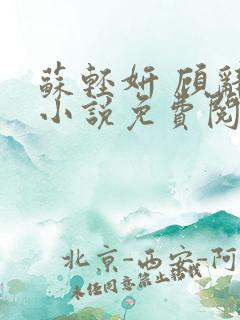 蘇輕妍 顧辭
小說免費閱
北京-西安-阿
未经同意禁止转载